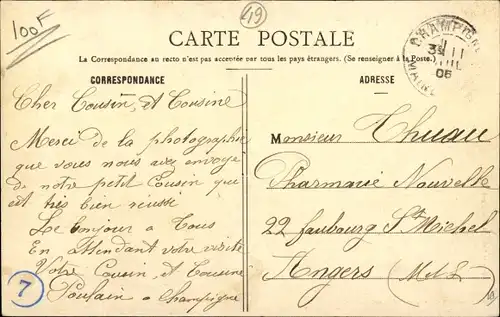 100F
49
CARTE POSTALE
La Correspondance au recto n'est pas acceptée par tous les pays étrangers. (Se renseigner à la Poste.)
CORRESPONDANCE
ADRESSE
CHAMPIGNÉ
MAINE
06
Cher Cousin, et Cousine
Merci de la photographie
que vous nous avez envoyé
de notre petit Cousin qui
est très bien réussie
Le bonjour a Tous
En Attendant votre visite
Votre Cousin, et Cousine
Poulain a Champigné
7
Monsieur Thuau
Pharmacie Nouvelle
22 faubourg St Michel
Angers (M&L)